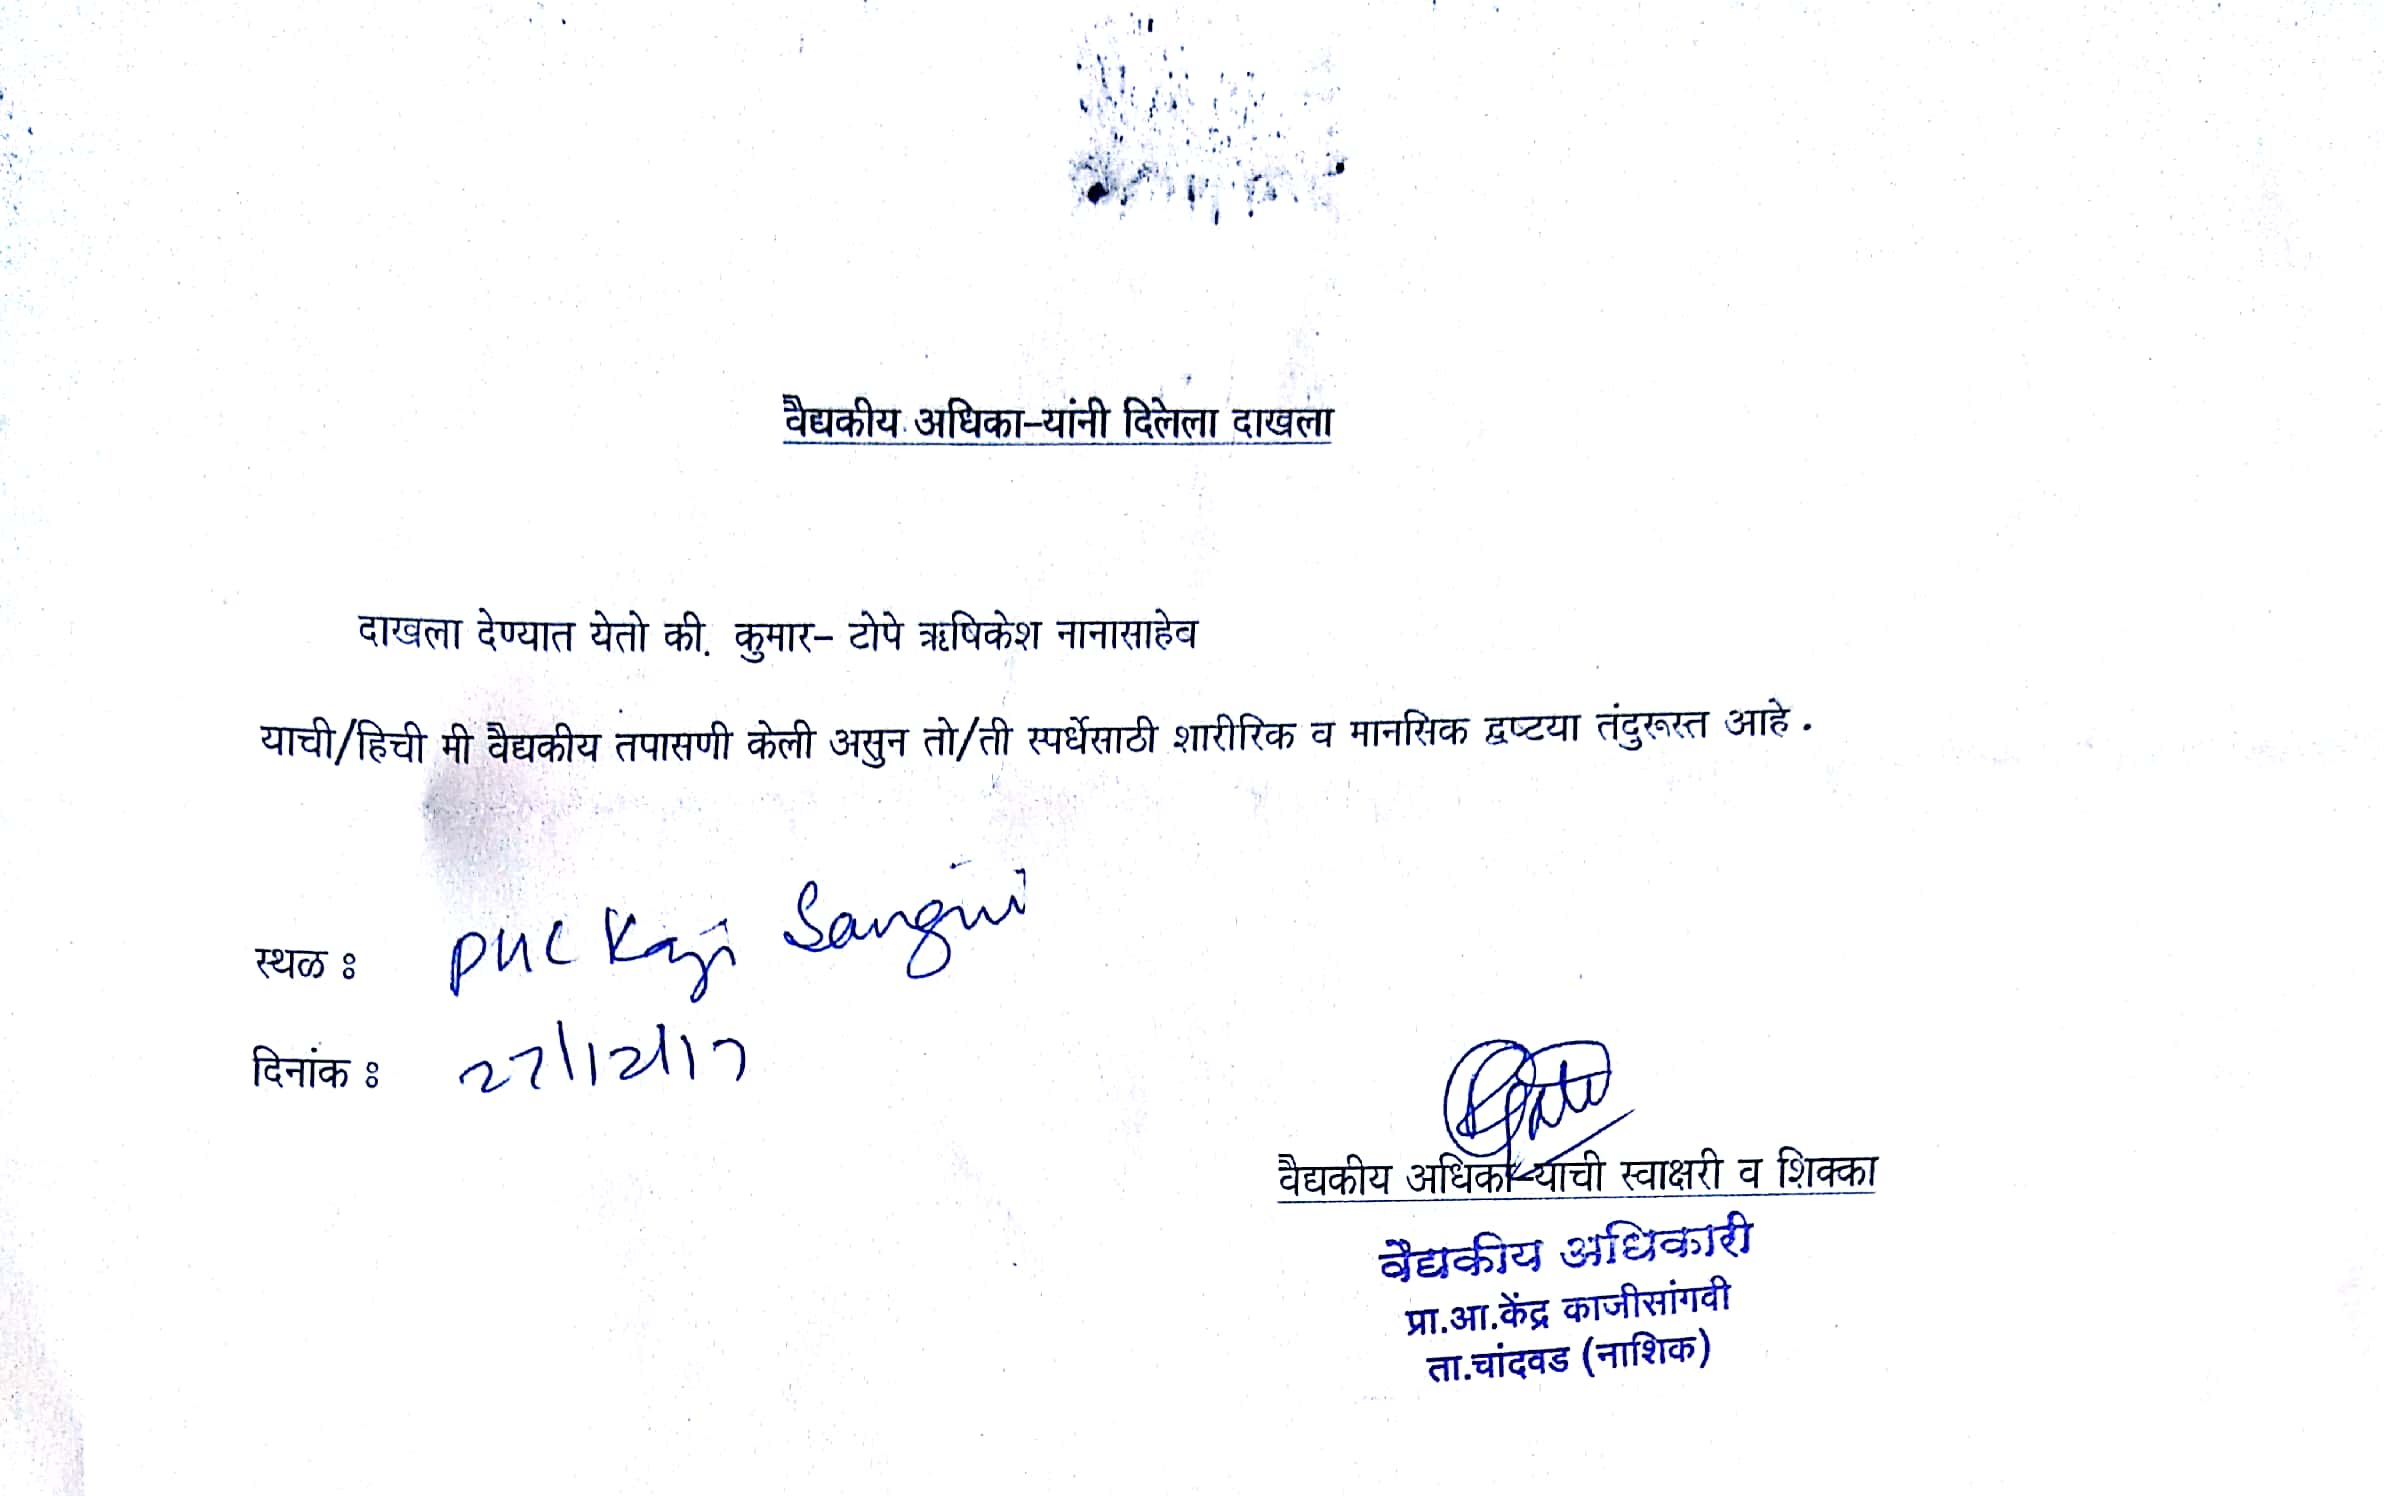 वैद्यकीय अधिका-यांनी दिलेला दाखला
दाखला देण्यात येतो की. कुमार- टोपे ऋषिकेश नानासाहेव
याची/हिची मी वैद्यकीय तपासणी केली असुन तो/ती स्पर्धेसाठी शारीरिक व मानसिक द्वष्टया तंदुरूस्त आहे .
स्थळ : PHC Kaji Sangvi
दिनांक : 27/12/17
वैद्यकीय अधिका-याची स्वाक्षरी व शिक्का
वैद्यकीय अधिकारी
प्रा.आ.केंद्र काजीसांगवी
ता.चांदवड (नाशिक)